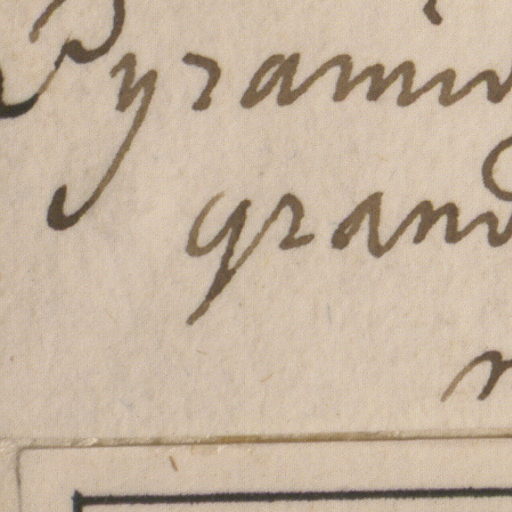 Pyramid
grand